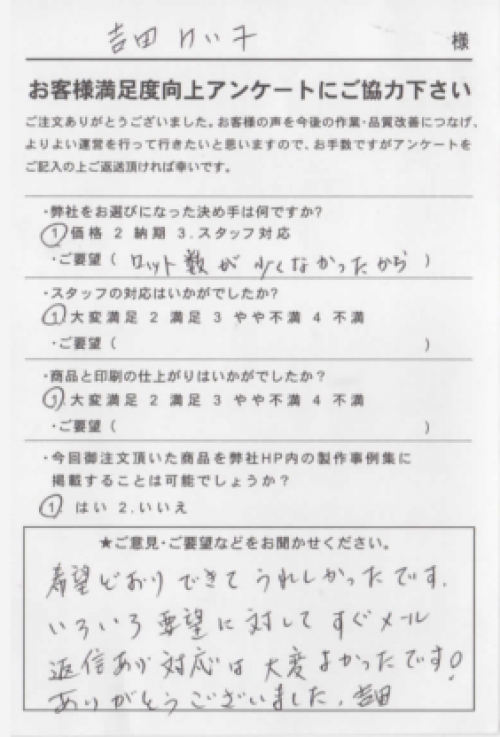 吉田 けい子 様
お客様満足度向上アンケートにご協力下さい
ご注文ありがとうございました。お客様の声を今後の作業・品質改善につなげ、
よりよい運営を行って行きたいと思いますので、お手数ですがアンケートを
ご記入の上ご返送頂ければ幸いです。
・弊社をお選びになった決め手は何ですか?
① 価格 2 納期 3.スタッフ対応
・ご要望 ( ロット数が少くなかったから )
・スタッフの対応はいかがでしたか?
①.大変満足 2 満足 3 やや不満 4 不満
・ご要望 ( )
・商品と印刷の仕上がりはいかがでしたか?
①.大変満足 2 満足 3 やや不満 4 不満
・ご要望 ( )
・今回御注文頂いた商品を弊社HP内の製作事例集に
掲載することは可能でしょうか?
① はい 2.いいえ
★ご意見・ご要望などをお聞かせください。
希望どおりできてうれしかったです.
いろいろ要望に対してすぐメール
返信あり対応は大変よかったです!
ありがとうございました. 吉田